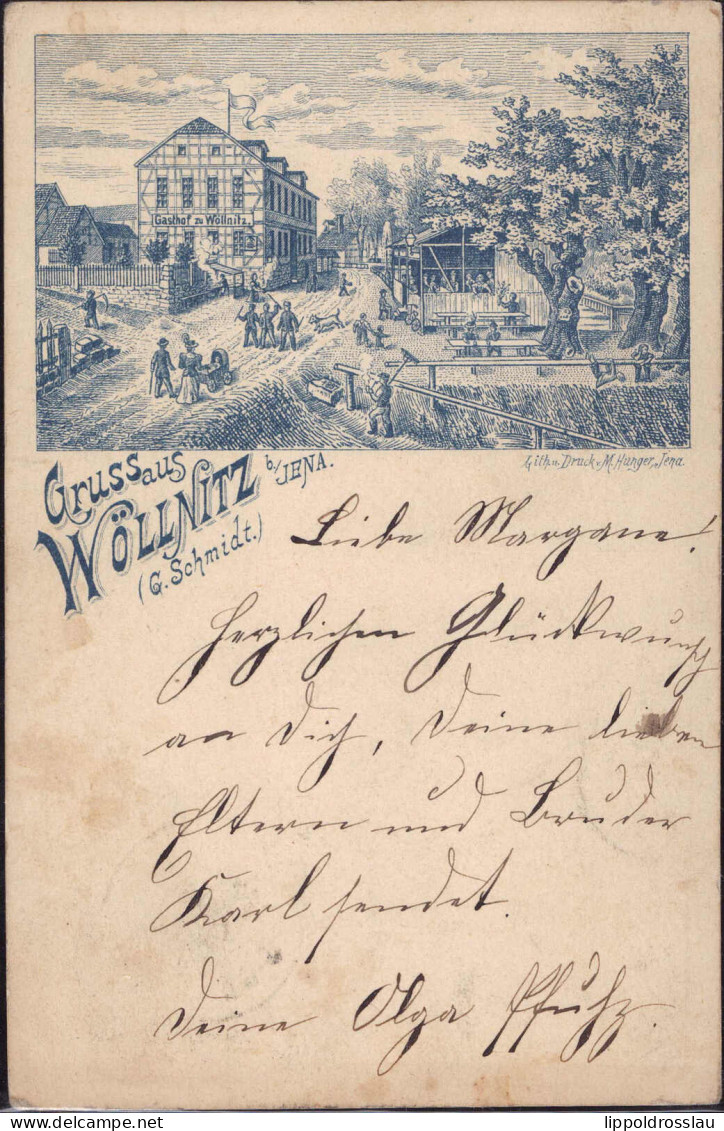 Gasthof zu Wöllnitz.
Lith. u. Druck v. M. Hunger, Jena.
Gruss aus
WÖLLNITZ b./JENA.
(G. Schmidt.)
Liebe Margane!
Herzlichen Glückwunsch
an Dich, Deine lieben
Eltern und Bruder
Karl sendet.
Deine Olga Pfuhz.
lippoldrosslau